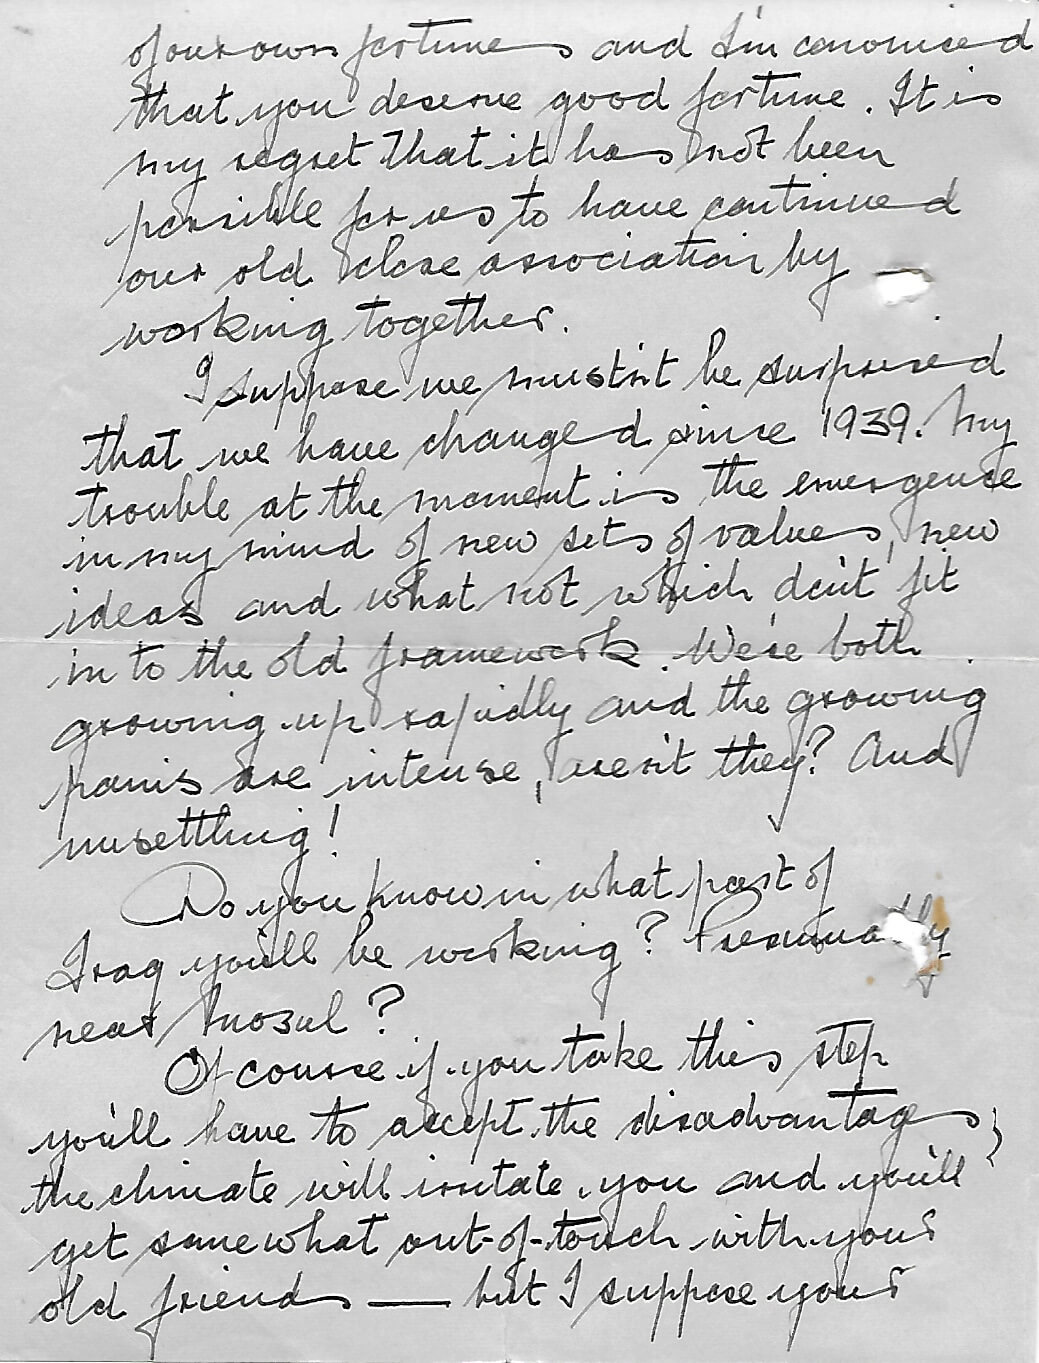 of our own fortunes and I'm convinced
that you deserve good fortune. It is
my regret that it has not been
possible for us to have continued
our old close association by
working together.
I suppose we mustn't be surprised
that we have changed since 1939. My
trouble at the moment is the emergence
in my mind of new sets of values, new
ideas and what not which don't fit
in to the old framework. We're both
growing up rapidly and the growing
pains are intense, aren't they? And
unsettling!
Do you know in what part of
Iraq you'll be working? Presumably
near Mosul?
Of course if you take this step
you'll have to accept the disadvantages;
the climate will irritate you and you'll
get somewhat out-of-touch with your
old friends — but I suppose your